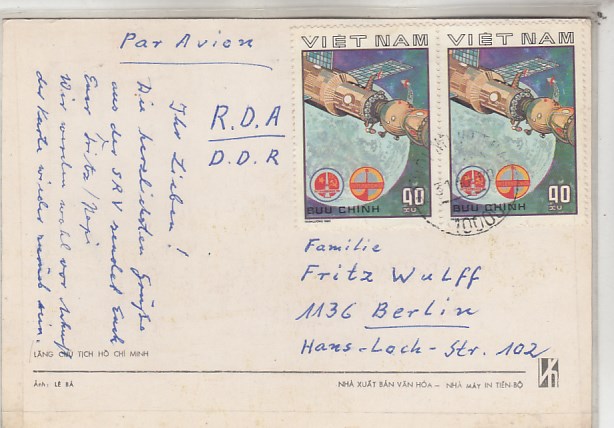 Par Avion
R.D.A
D.D.R
VIỆT NAM
90
XU
BƯU CHÍNH
VIỆT NAM
90
XU
BƯU CHÍNH
10000
Ihr Lieben!
Die herzlichsten Grüße
aus der SRV sendet Euch
Euer Fritz/
Wir werden wohl vor
der Karte wieder zurück sein.
Familie
Fritz Wulff
1136 Berlin
Hans-Loch-Str. 102
LĂNG CHỦ TỊCH HỒ CHÍ MINH
Ảnh: LÊ BÁ
NHÀ XUẤT BẢN VĂN HÓA – NHÀ MÁY IN TIẾN-BỘ